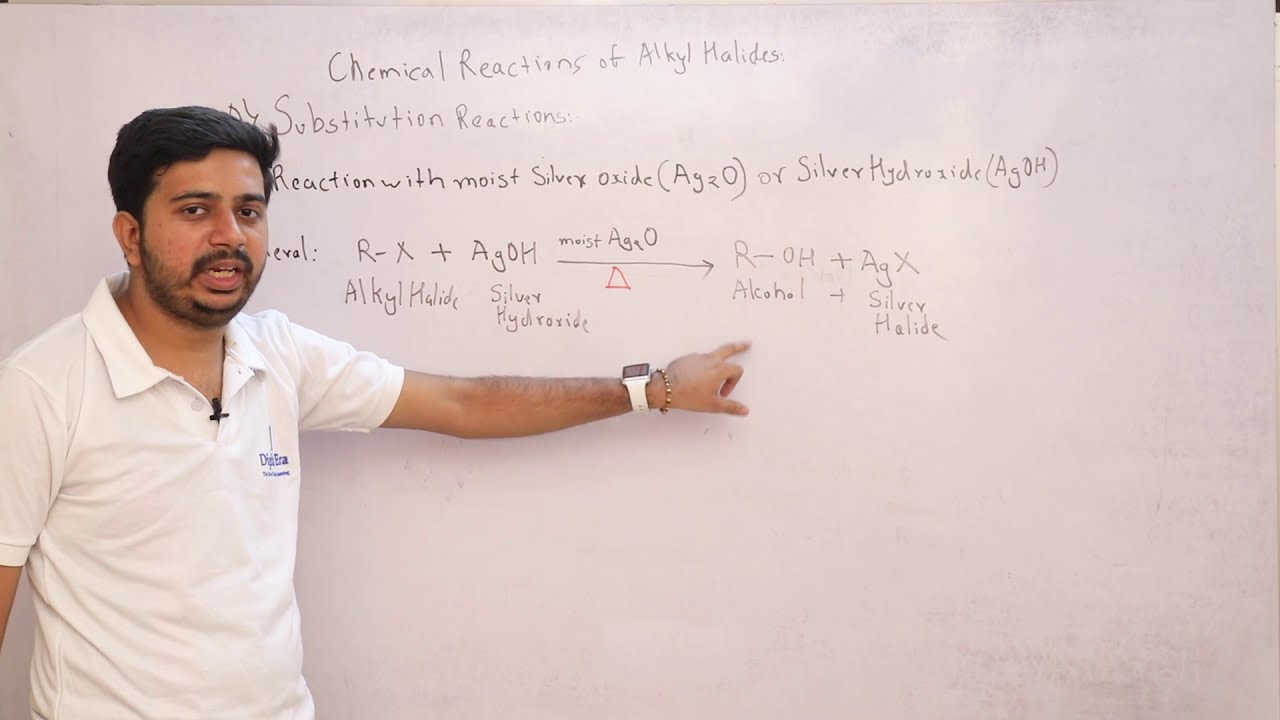 Chemical Reactions of Alkyl Halides:
Substitution Reactions:
Reaction with moist Silver oxide (Ag2O) or Silver Hydroxide (AgOH)
eral: R-X + AgOH moist Ag2O → R-OH + AgX
Δ
Alkyl Halide Silver Hydroxide Alcohol + Silver Halide
Era